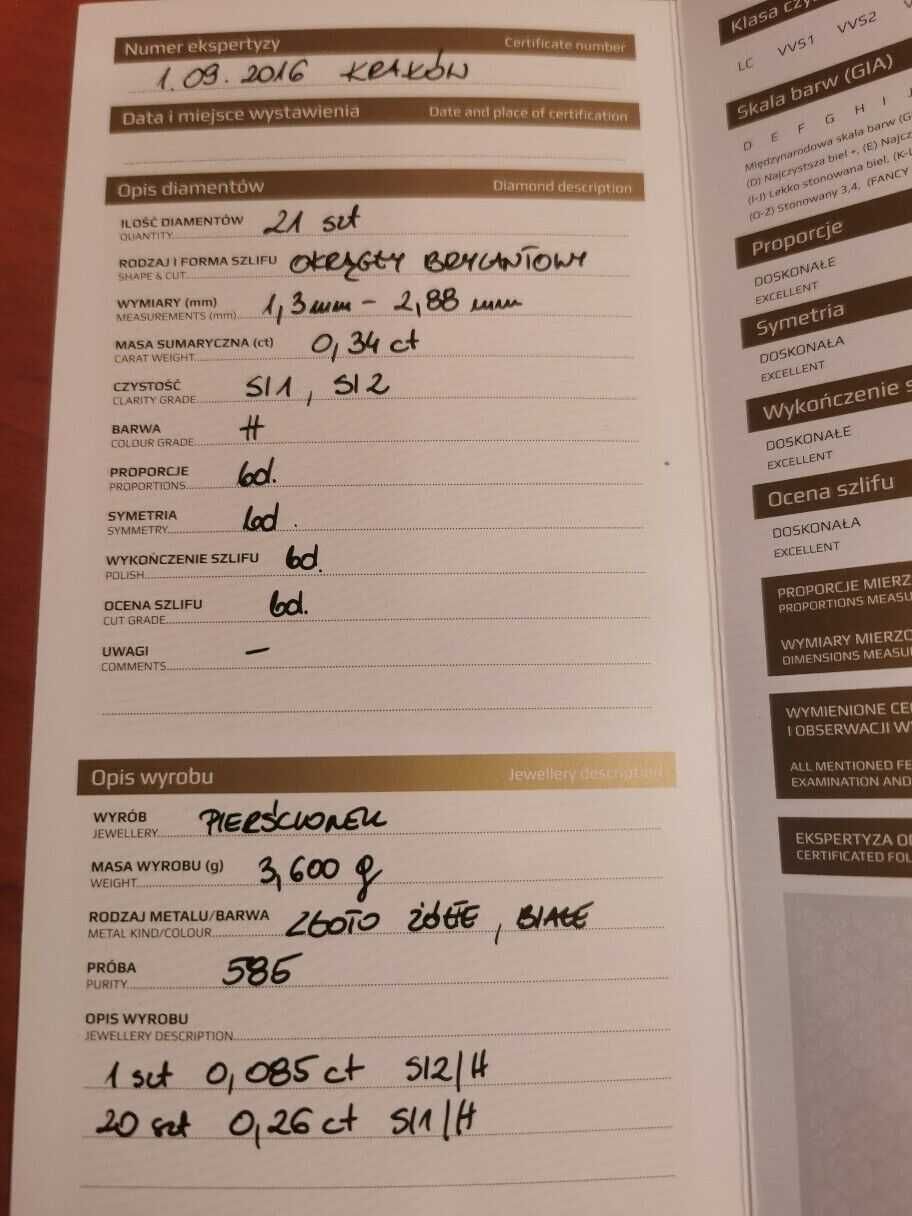 Numer ekspertyzy Certificate number
1.09.2016 KRAKÓW
Data i miejsce wystawienia Date and place of certification
Opis diamentów Diamond description
ILOŚĆ DIAMENTÓW 21 szt
QUANTITY
RODZAJ I FORMA SZLIFU OKRĄGŁY BRYLANTOWY
SHAPE & CUT
WYMIARY (mm) 1,3mm - 2,88 mm
MEASUREMENTS (mm)
MASA SUMARYCZNA (ct) 0,34 ct
CARAT WEIGHT
CZYSTOŚĆ SI1, SI2
CLARITY GRADE
BARWA H
COLOUR GRADE
PROPORCJE bd.
PROPORTIONS
SYMETRIA bd.
SYMMETRY
WYKOŃCZENIE SZLIFU bd.
POLISH
OCENA SZLIFU bd.
CUT GRADE
UWAGI —
COMMENTS
Opis wyrobu Jewellery description
WYRÓB PIERŚCIONEK
JEWELLERY
MASA WYROBU (g) 3,600 g
WEIGHT
RODZAJ METALU/BARWA ZŁOTO ŻÓŁTE, BIAŁE
METAL KIND/COLOUR
PRÓBA 585
PURITY
OPIS WYROBU
JEWELLERY DESCRIPTION
1 szt 0,085 ct SI2/H
20 szt 0,26 ct SI1/H
Klasa
LC VVS1 VVS2
Skala barw (GIA)
D E F G H I J
Międzynarodowa skala barw
(D) Najczystsza biel +, (E)
(I-J) Lekko stonowana biel,
(O-Z) Stonowany 3,4, (FANCY
Proporcje
DOSKONAŁE
EXCELLENT
Symetria
DOSKONAŁA
EXCELLENT
Wykończenie
DOSKONAŁE
EXCELLENT
Ocena szlifu
DOSKONAŁA
EXCELLENT
PROPORCJE MIERZ
PROPORTIONS MEASU
WYMIARY MIERZO
DIMENSIONS MEASU
WYMIENIONE CE
I OBSERWACJI W
ALL MENTIONED FE
EXAMINATION AND
EKSPERTYZA O
CERTIFICATED FOL